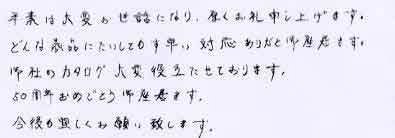 平素は大変お世話になり、厚くお礼申し上げます。
どんな製品にたいしてもす早い対応ありがと御座居ます。
御社のカタログ大変役立たせております。
50周年おめでとう御座居ます。
今後も宜しくお願い致します。